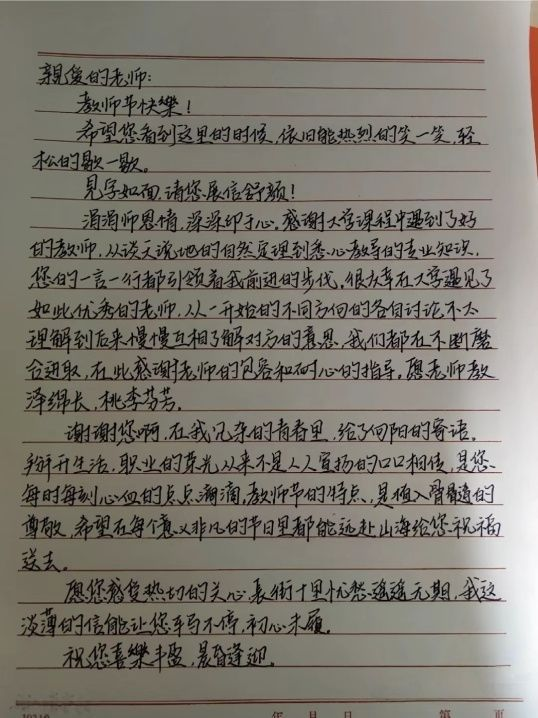 亲爱的老师:
教师节快樂!
希望您看到这里的时候,依旧能热烈的笑一笑,轻
松的歇一歇。
见字如面,请您展信舒颜!
涓涓师恩情,深深印于心。感谢大学课程中遇到了好
的教师,从谈天说地的自然定理到悉心教导的专业知识,
您的一言一行都引领着我前进的步伐,很庆幸在大学遇见了
如此优秀的老师,从一开始的不同方向的各自讨论不太
理解到后来慢慢互相了解对方的意思,我们都在不断磨
合进取,在此感谢老师的包容和耐心的指导。愿老师教
泽绵长,桃李芬芳。
谢谢您啊,在我冗杂的青春里,给了向阳的寄语。
掰开生活,职业的荣光从来不是人人宣扬的口口相传,是您
每时每刻心血的点点滴滴,教师节的特点,是植入骨髓的
尊敬,希望在每个意义非凡的节日里都能远赴山海给您祝福
送去。
愿您感受热切的关心,长街十里忧愁遥遥无期,我这
淡薄的信能让您车马不停,初心未顾。
祝您喜樂丰盈,晨昏逢迎。
年 月 日 第 页